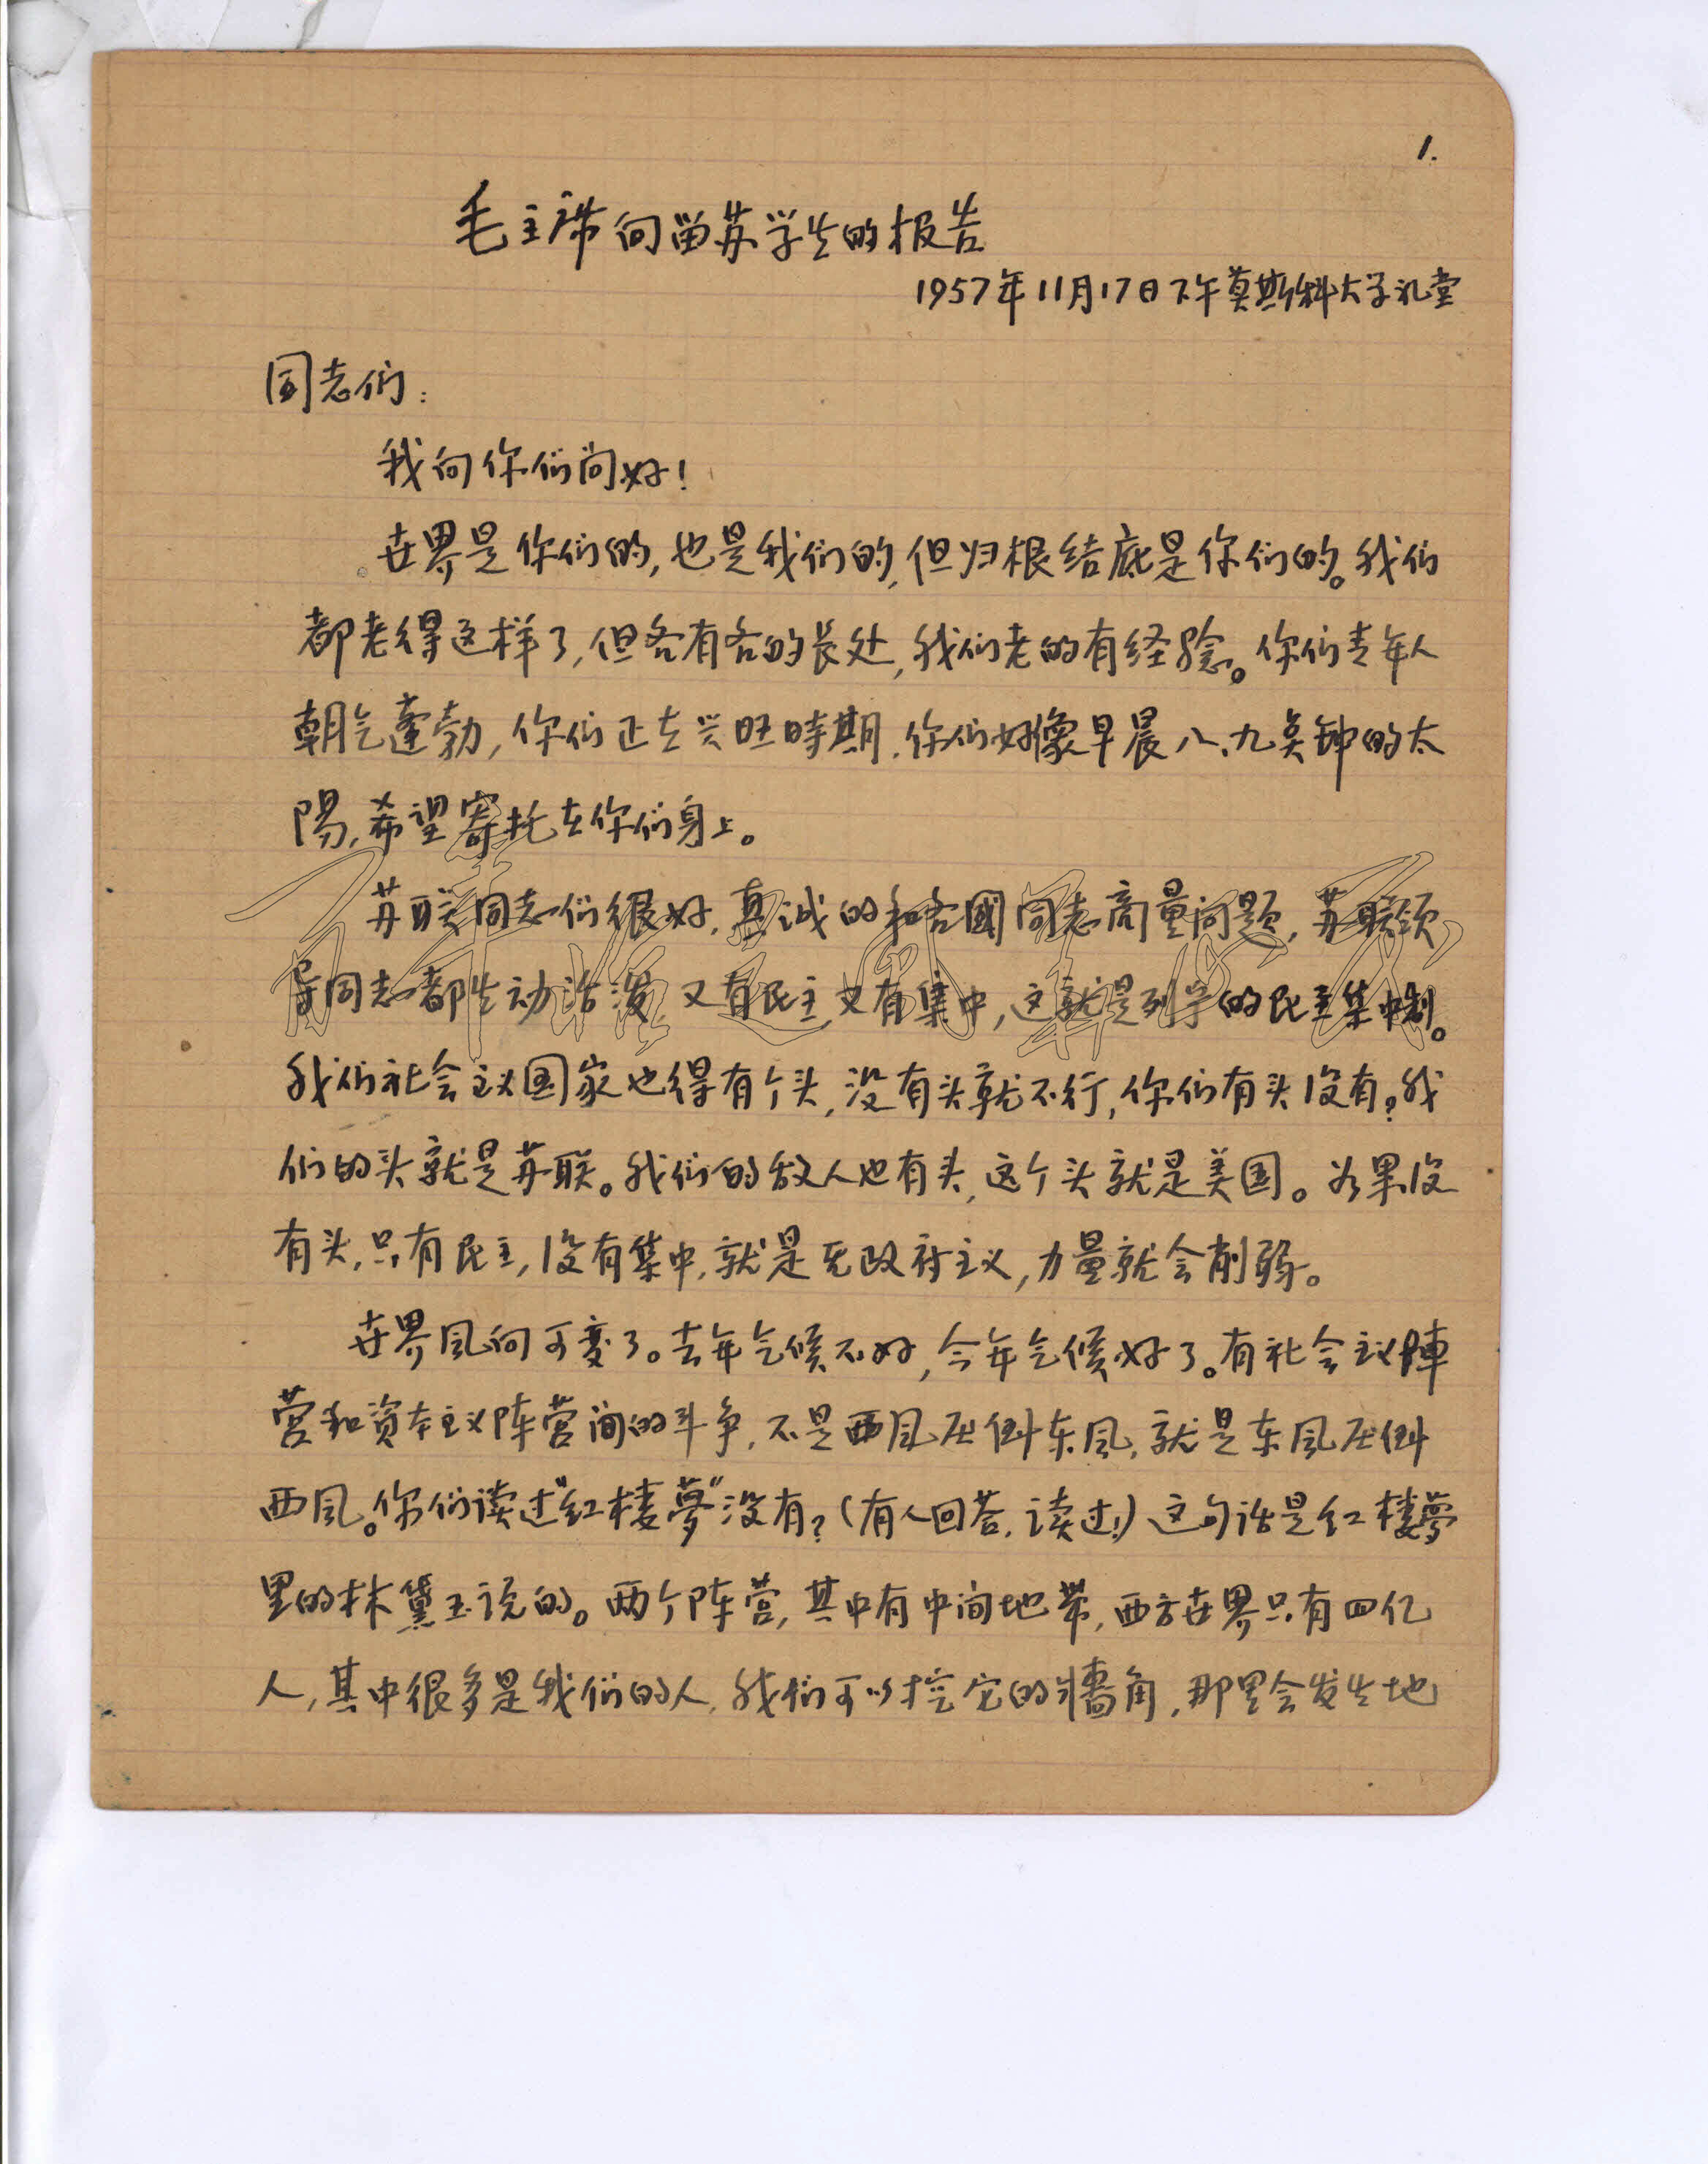 1.
毛主席向留苏学生的报告
1957年11月17日下午莫斯科大学礼堂
同志们:
我向你们问好!
世界是你们的,也是我们的,但归根结底是你们的。我们
都老得这样了,但各有各的长处,我们老的有经验。你们青年人
朝气蓬勃,你们正在兴旺時期.你们好像早晨八、九点钟的太
陽,希望寄托在你们身上。
苏联同志们很好,真诚的和各國同志商量问题,苏联领
导同志都生动活泼,又有民主,又有集中,这就是列宁的民主集中制。
我们社会主义国家也得有个头,没有头就不行,你们有头没有?我
们的头就是苏联。我们的敌人也有头,这个头就是美国。如果没
有头,只有民主,没有集中,就是无政府主义,力量就会削弱。
世界風向可变了。去年气候不好,今年气候好了。有社会主义陣
营和资本主义阵营间的斗争,不是西風压倒东風,就是东風压倒
西風。你们读过"红楼夢"没有?(有人回答,读过!)这句话是红楼夢
里的林黛玉说的。两个阵营,其中有中间地帶,西方世界只有四亿
人,其中很多是我们的人,我们可以挖它的牆角,那里会发生地